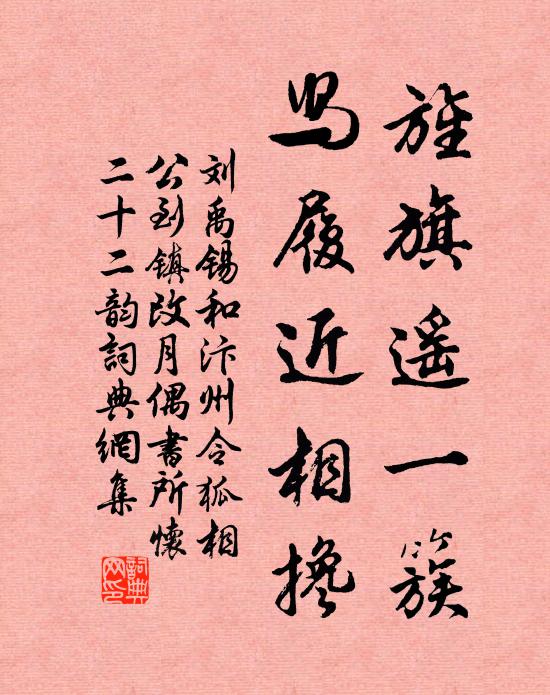 旌旗遥一簇
舄履近相搀
刘禹锡和汴州令狐相
公到镇改月偶书所怀
二十二韵词典網集
詞典网印